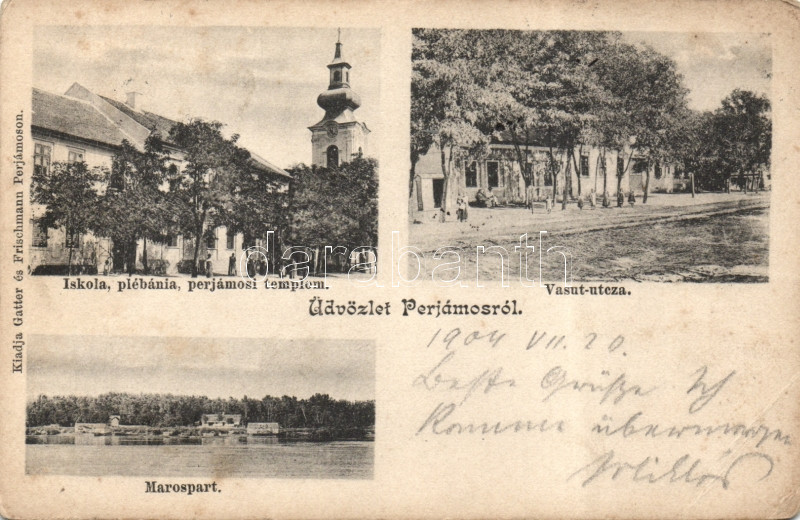 Kiadja Gatter és Frischmann Perjámoson.
Iskola, plébánia, perjámosi templom.
Vasut-utcza.
Üdvözlet Perjámosról.
1904 VII. 20.
Beste Grüße Ich
komme übermorgen
Marospart.
darabanth